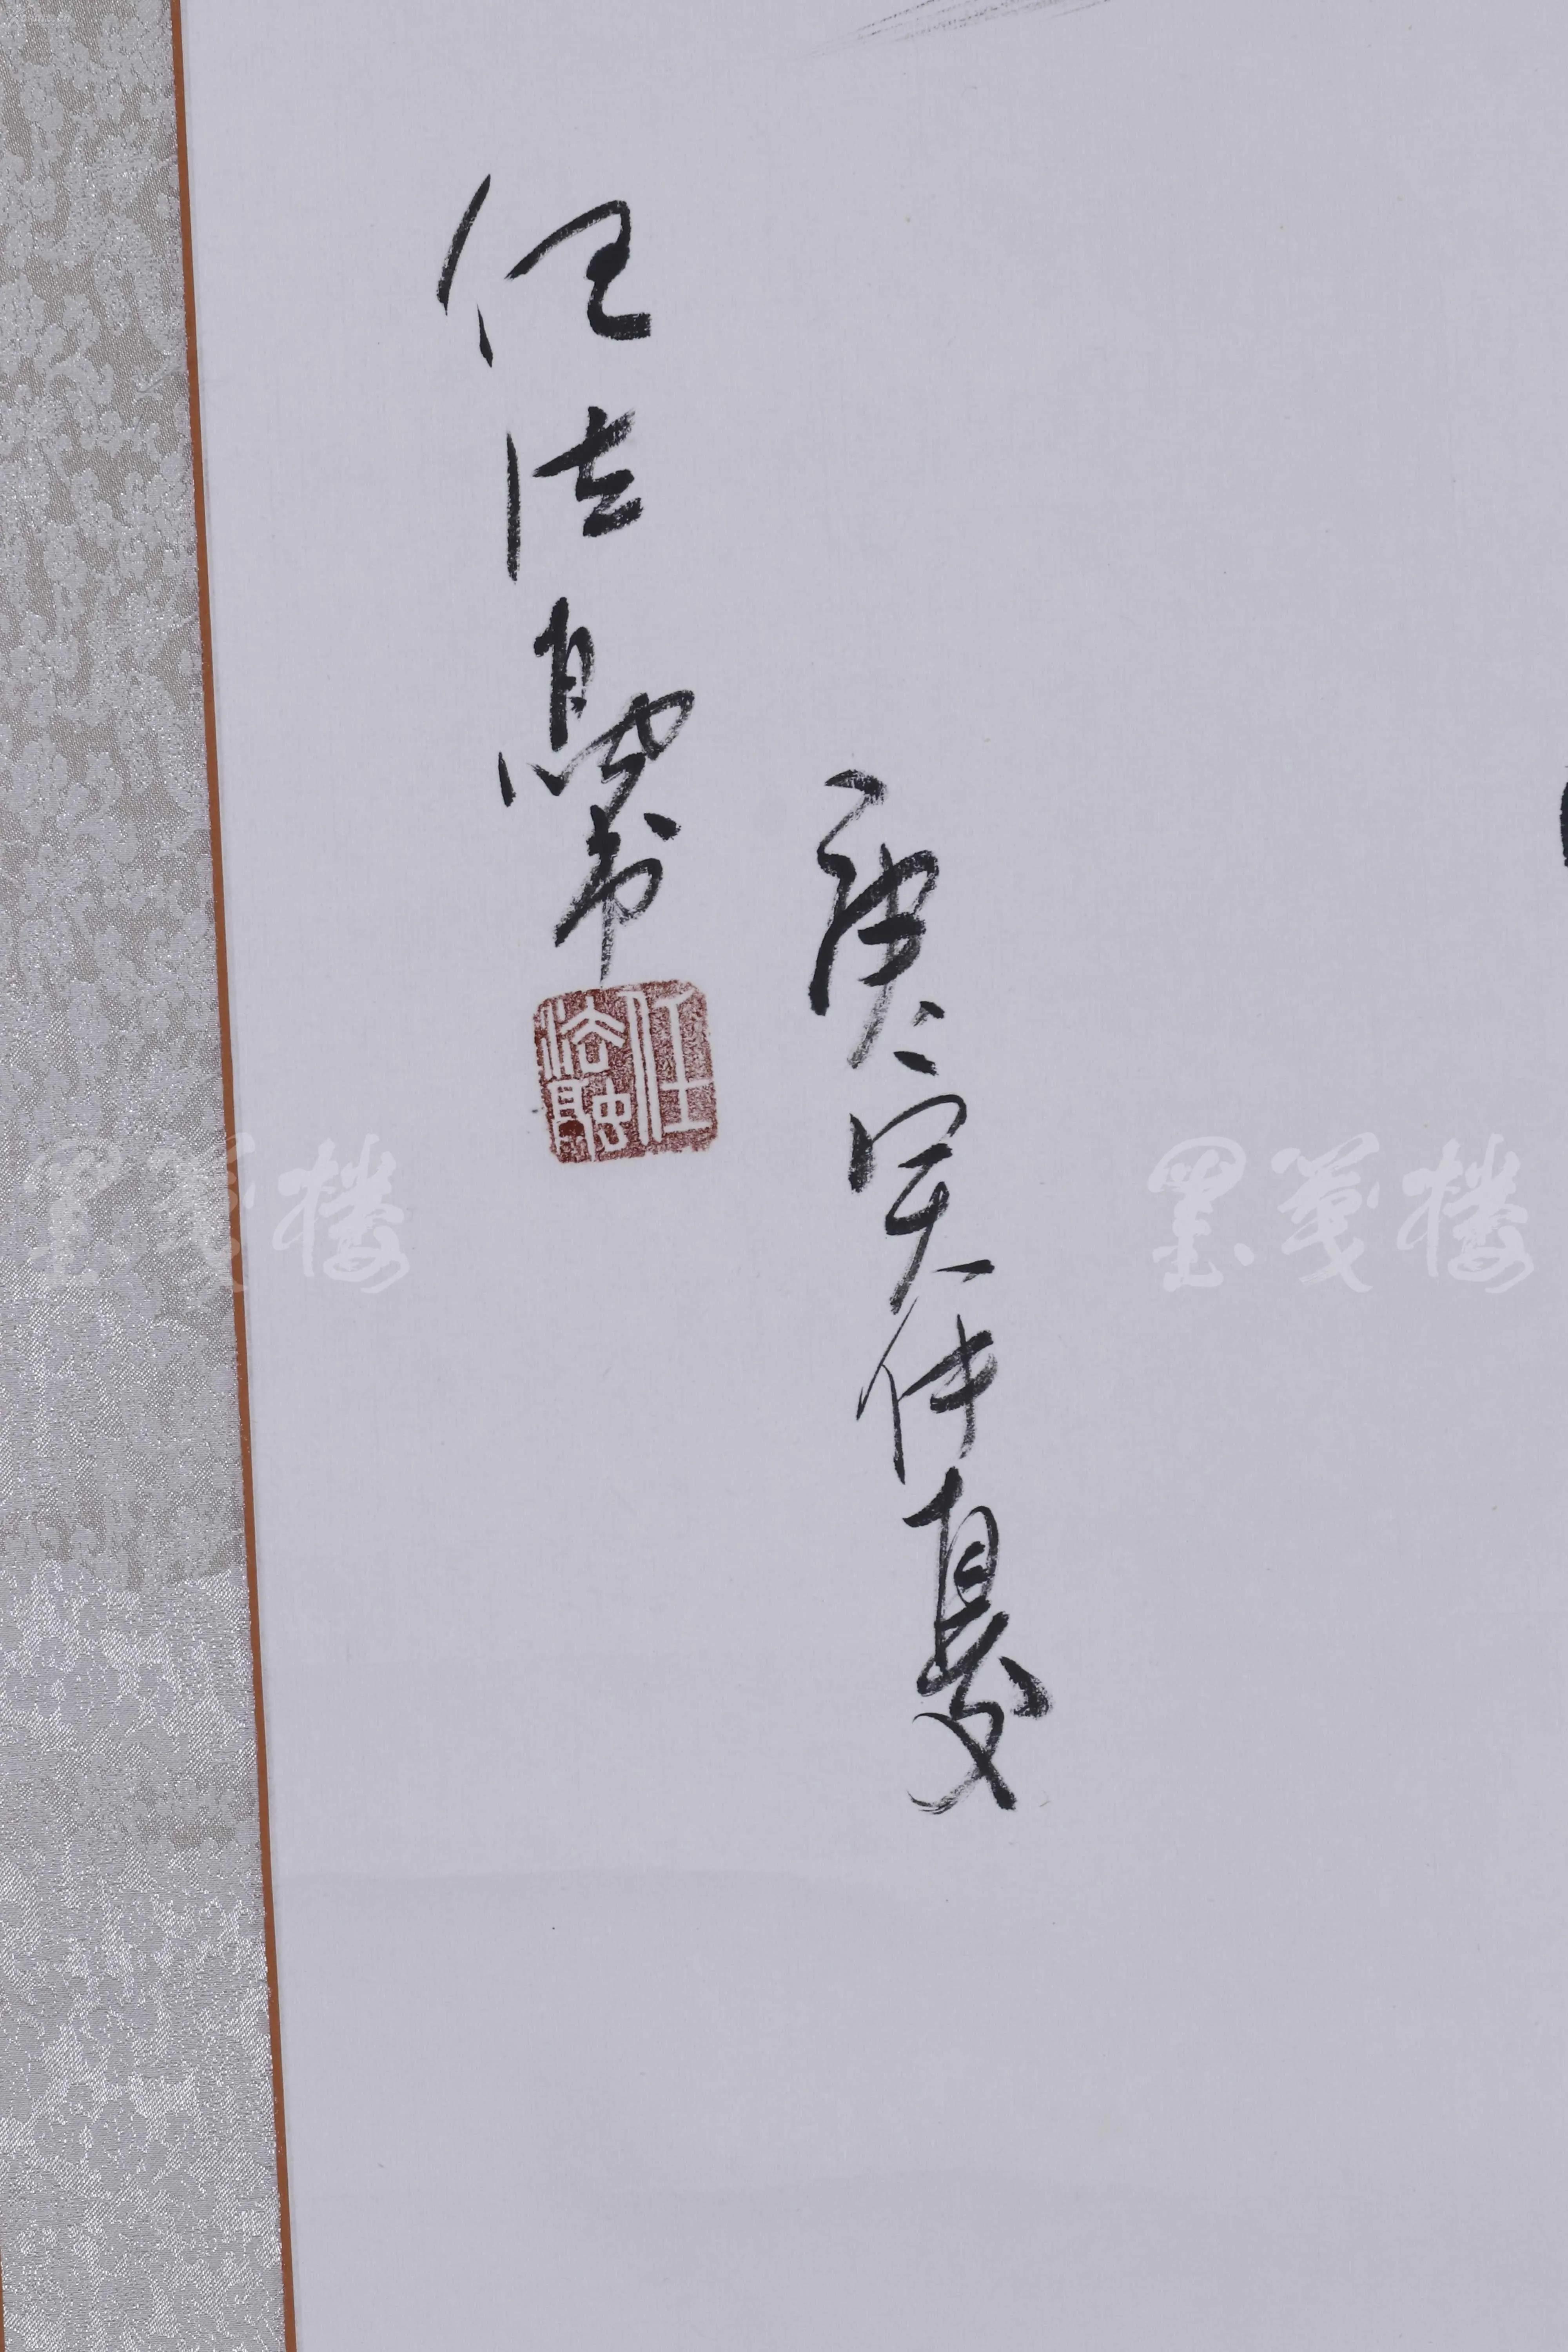 庚寅仲夏
任法融书
任法融
墨笺楼
墨笺楼